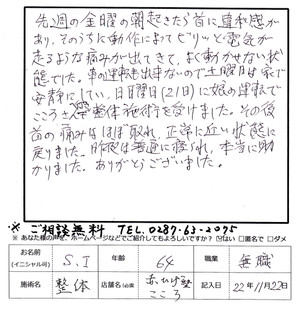 先週の金曜の朝起きたら首に違和感が
あり、そのうちに動作によってビリッと電気が
走るような痛みが出てきて、よく動かせない状
態でした。車の運転も出来ないので土曜日は家で
安静にしてい、日曜日(21日)に娘の運転で
こころさん整体施術を受けました。その後
首の痛みはほぼ取れ、正常に近い状態に
戻りました。昨夜は普通に寝られ、本当に助
かりました。ありがとうございました。
※ ご相談無料 TEL.0287-63-2075
※ あなた様の声を、ホームページなどでご紹介してもよろしいですか? はい □匿名で □ダメ
お名前 (イニシャル可) S.I 年齢 64 職業 無職
施術名 整体 店舗名(必須) 赤ひげ塾 こころ 記入日 22年11月22日